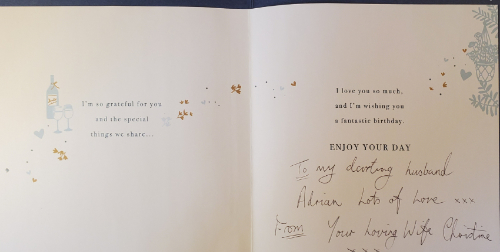 I'm so grateful for you
and the special
things we share...
I love you so much,
and I'm wishing you
a fantastic birthday.
ENJOY YOUR DAY
To my devoting husband
Adrian Lots of Love xxx
From Your Loving Wife Christine
x x x